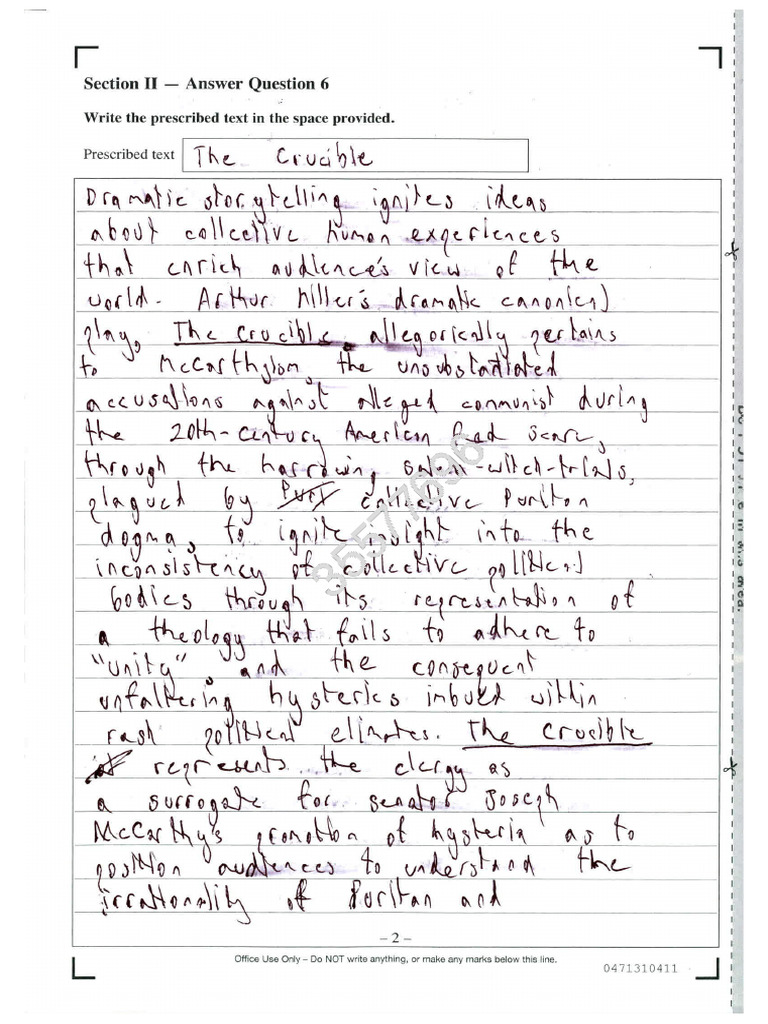 Section II — Answer Question 6
Write the prescribed text in the space provided.
Prescribed text The Crucible
Dramatic storytelling ignites ideas
about collective human experiences
that enrich audience's view of the
world. Arthur Miller's dramatic canonical
play, The Crucible, allegorically pertains
to McCarthyism, the unsubstantiated
accusations against alleged communist during
the 20th-century American Red Scare,
through the harrowing Salem-witch-trials,
plagued by Puri collective Puritan
dogma, to ignite insight into the
inconsistency of collective political
bodies through its representation of
a theology that fails to adhere to
"unity", and the consequent
unfaltering hysterics imbued within
rash political climates. The Crucible
represents the clergy as
a surrogate for senator Joseph
McCarthy's promotion of hysteria as to
position audiences to understand the
irrationality of Puritan and
35577696
– 2 –
Office Use Only – Do NOT write anything, or make any marks below this line.
0471310411